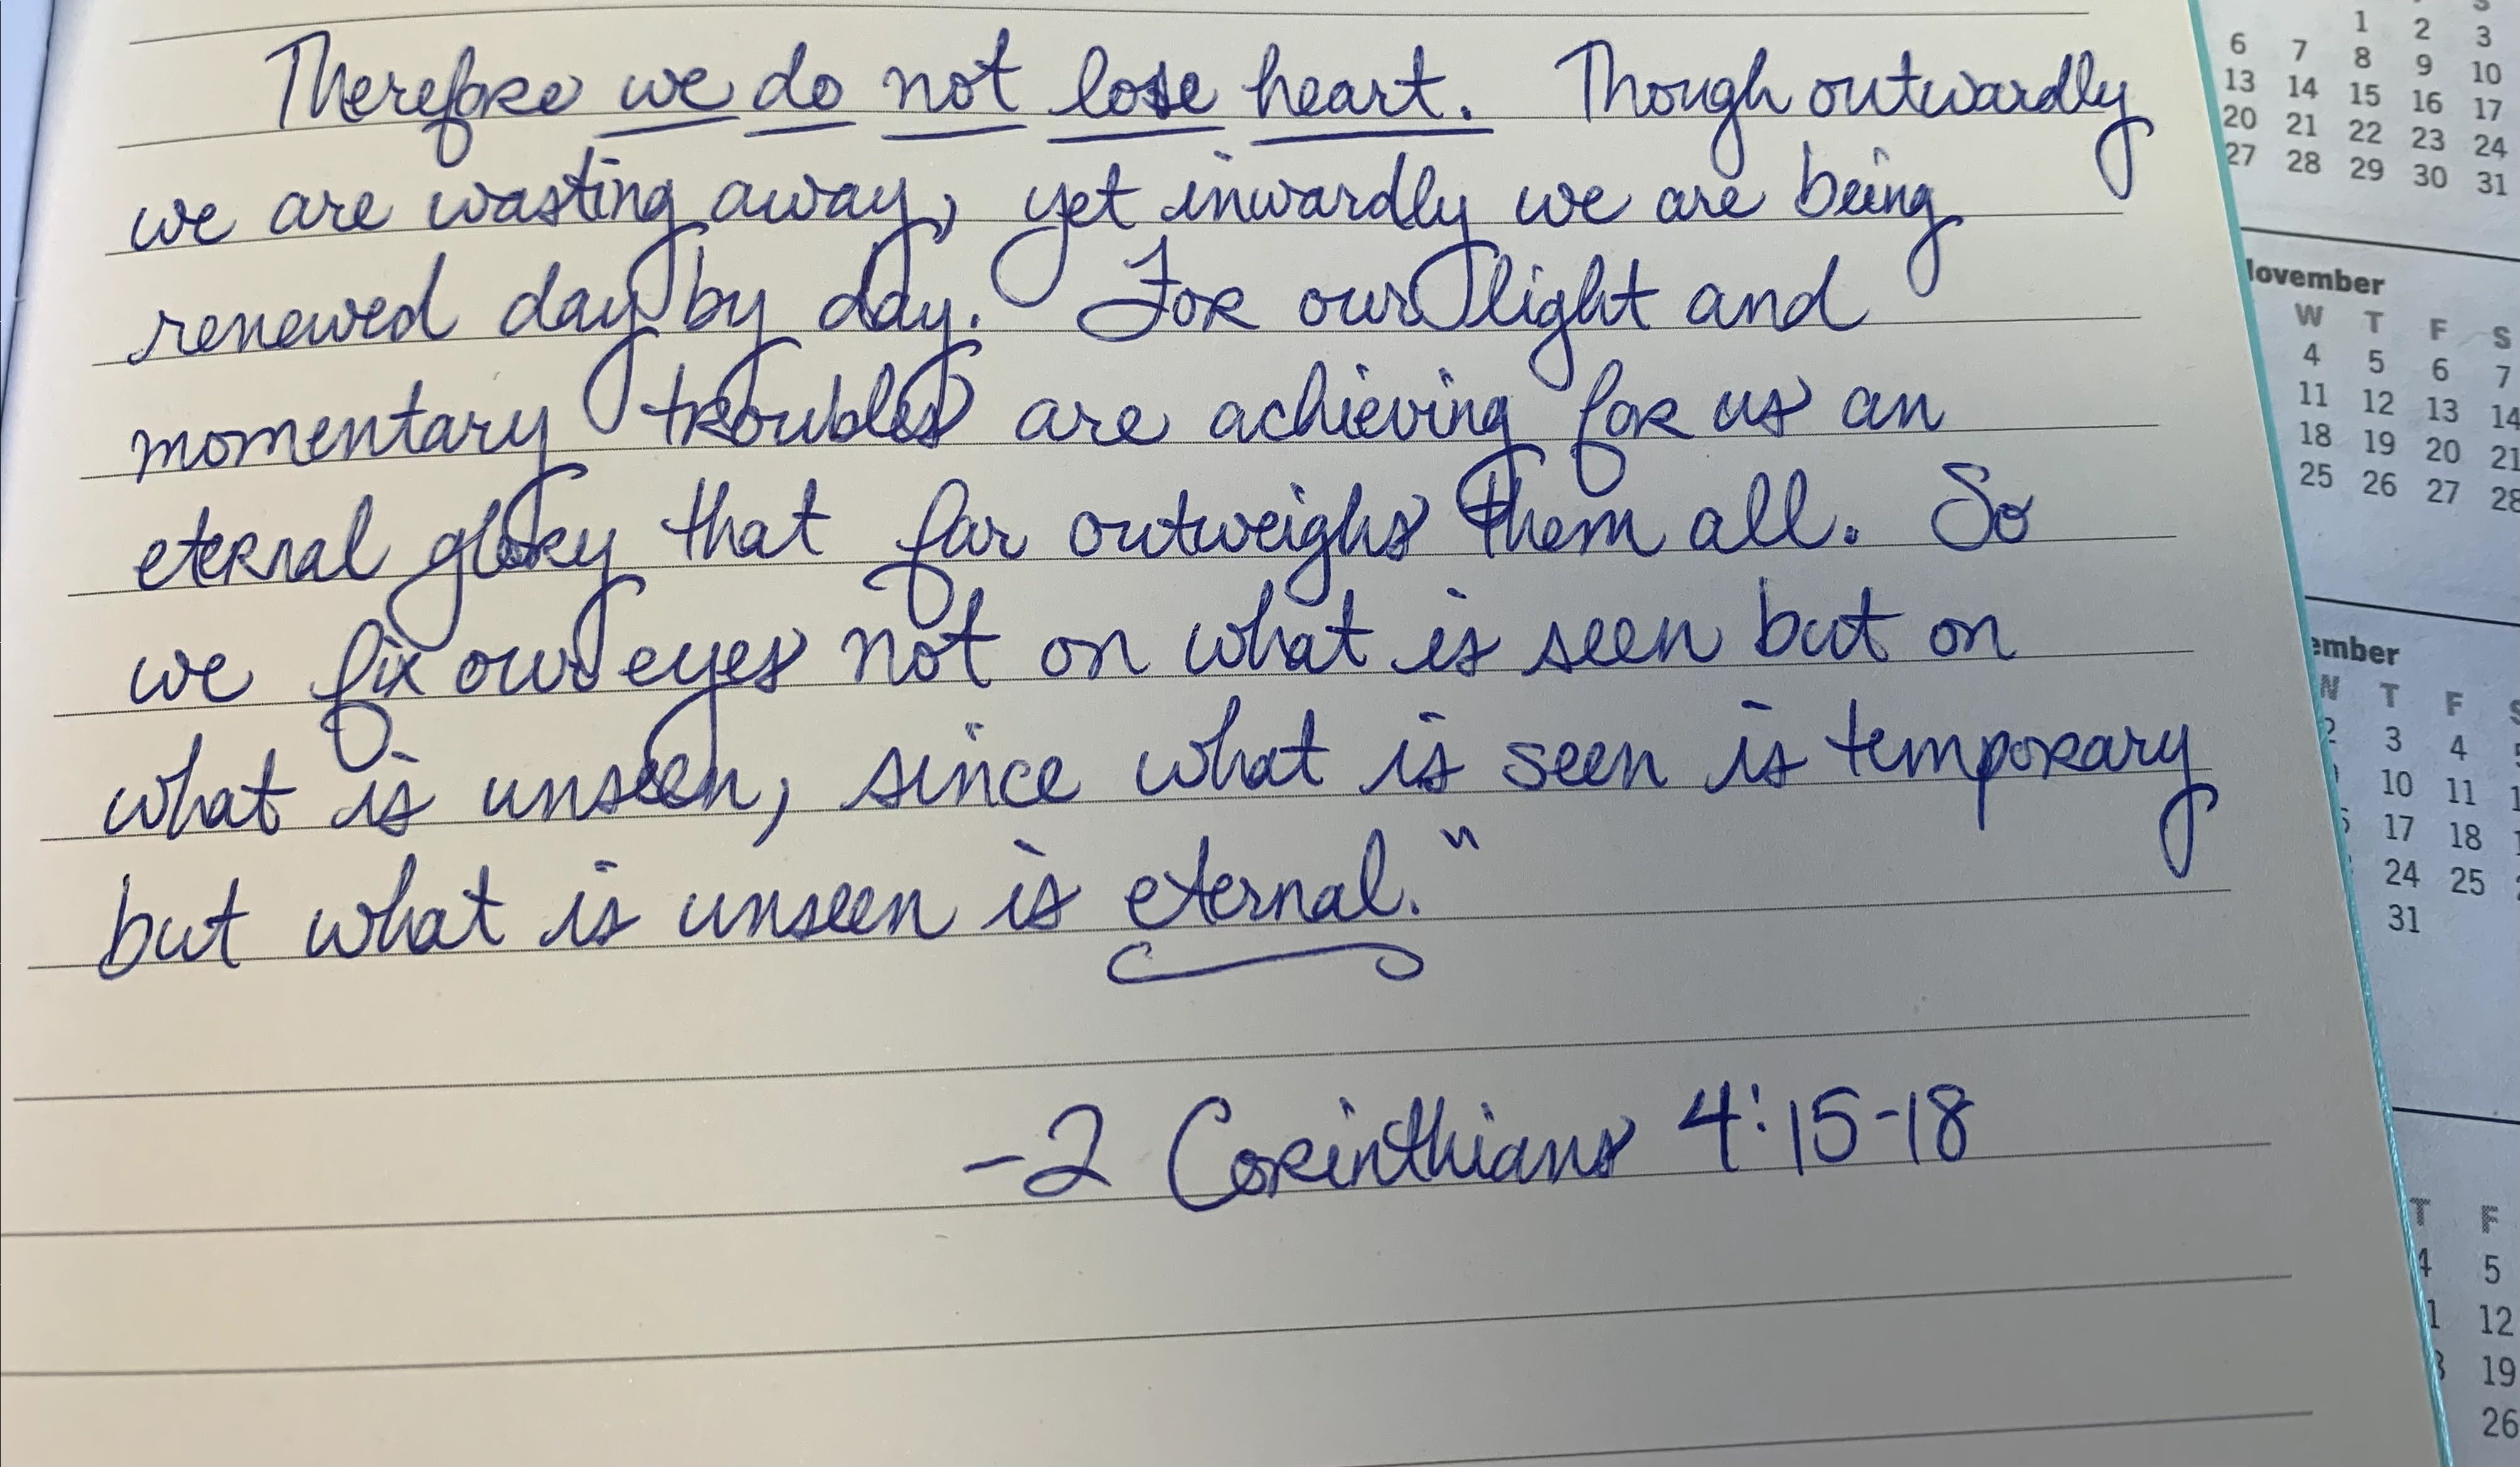 Therefore we do not lose heart. Though outwardly
we are wasting away, yet inwardly we are being
renewed day by day. For our light and
momentary troubles are achieving for us an
eternal glory that far outweighs them all. So
we fix our eyes not on what is seen but on
what is unseen, since what is seen is temporary
but what is unseen is eternal."
-2 Corinthians 4:15-18
1 2 3
6 7 8 9 10
13 14 15 16 17
20 21 22 23 24
27 28 29 30 31
ovember
W T F S
4 5 6 7
11 12 13 14
18 19 20 21
25 26 27 28
ember
T F
3 4
10 11
17 18
24 25
31
T F
5
12
19
26